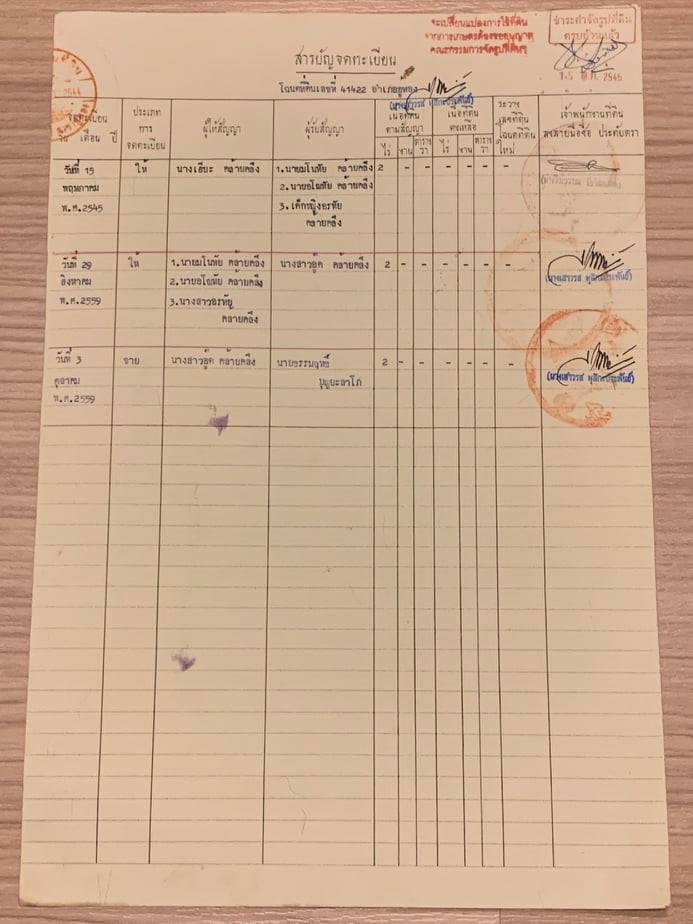 จะเปลี่ยนแปลงการใช้ที่ดิน
จากการเกษตรต้องขออนุญาต
คณะกรรมการจัดรูปที่ดินฯ
ชำระค่าจัดรูปที่ดิน
ครบถ้วนแล้ว
15 พ.ค. 2545
สารบัญจดทะเบียน
โฉนดที่ดินเลขที่ 41422 อำเภออู่ทอง
จดทะเบียน
วัน เดือน ปี
ประเภท
การ
จดทะเบียน
ผู้ให้สัญญา
ผู้รับสัญญา
เนื้อที่ดิน
ตามสัญญา
ไร่ งาน ตาราง
วา
เนื้อที่ดิน
คงเหลือ
ไร่ งาน ตาราง
วา
ระวาง
เลขที่ดิน
โฉนดที่ดิน
ใหม่
เจ้าพนักงานที่ดิน
ลงลายมือชื่อ ประทับตรา
วันที่ 15
พฤษภาคม
พ.ศ.2545
ให้
คล้ายคลึง
1.นายมโนทัย คล้ายคลึง
2.นายอโณทัย คล้ายคลึง
3.เด็กหญิงอรทัย
คล้ายคลึง
2 - - - - - -
วันที่ 29
สิงหาคม
พ.ศ.2559
ให้
1.นายมโนทัย คล้ายคลึง
2.นายอโณทัย คล้ายคลึง
3.นางสาวอรทัย
คล้ายคลึง
นางสาวอู๊ด คล้ายคลึง
2 - - - - - -
วันที่ 3
ตุลาคม
พ.ศ.2559
ขาย
นางสาวอู๊ด คล้ายคลึง
2 - - - - - -